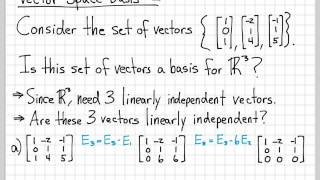 Vector Space Basis
Consider the set of vectors { [1 0 1], [-2 1 4], [-1 1 5] }.
Is this set of vectors a basis for ℝ³?
⇒ Since ℝ³, need 3 linearly independent vectors.
⇒ Are these 3 vectors linearly independent?
a) [1 -2 -1
0 1 1
1 4 5] E₃ = E₃ - E₁ [1 -2 -1
0 1 1
0 6 6] E₃ = E₃ - 6E₂ [1 -2 -1
0 1 1
0 0 0]